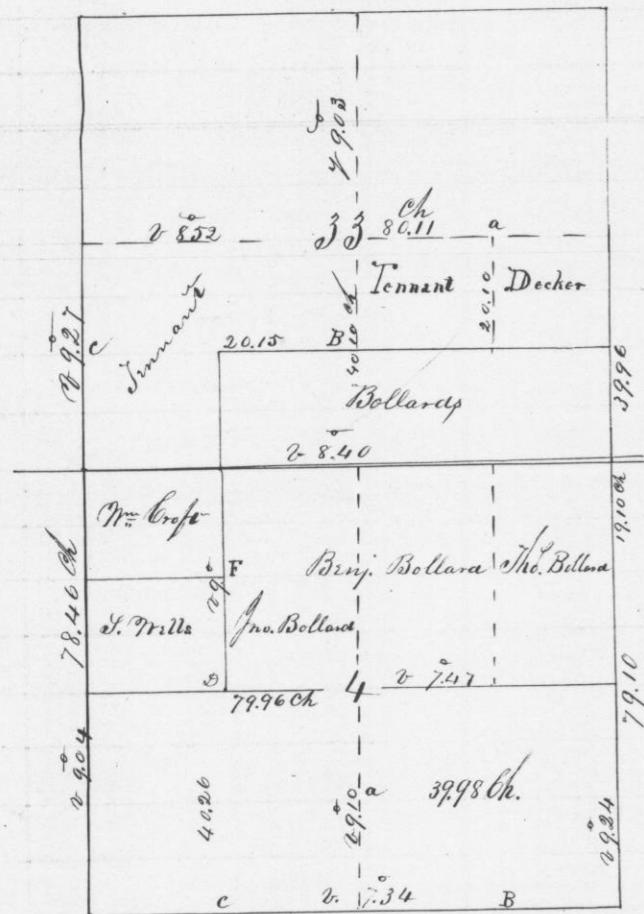 V 9.03
V 8.52 33 Ch 80.11 a
Tennant Decker
Tennant
V 9.27
C
20.10
40.10 Ch
20.15 B
39.96
Bollards
V 8.40
Wm Croft
19.10 Ch
78.46 Ch
F
V 9
Benj. Bollard Tho.s Bollard
S. Wells Jno. Bollard
D 4 V 7.47
79.96 Ch
79.10
V 9.04
40.26
V 9.10 a
39.98 Ch.
V 9.24
C V. 7.34 B